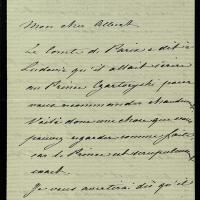 Mon cher Albert
Le Comte de Paris a dit à
Ludovic qu'il allait écrire
au Prince Czartoryski pour
vous recommander chaudem^t
Voilà donc une chose que vous
pouvez regarder comme faite
car le Prince est scrupuleux
exact.
Je vous avertirai dès qu'il